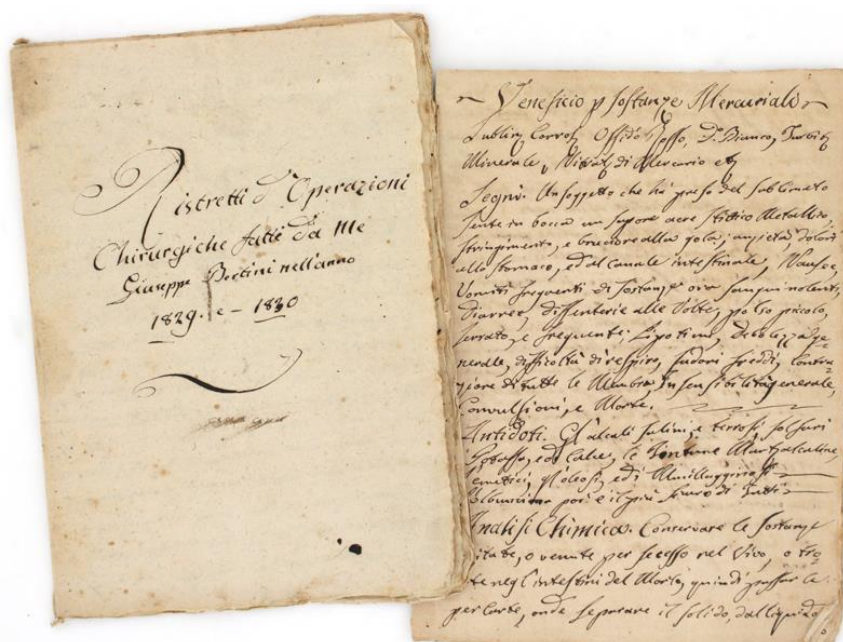 Ristretti d'Operazioni
Chirurgiche fatte da Me
Giuseppe Bertini nell'anno
1829. e - 1830
Veneficio p Sostanze Mercuriali
Sublim Corros Ossido Rosso, D. Bianco, Turbit
Minerale, Nitrat di Mercurio etc
Segni. Un soggetto che ha preso del sublimato
sente in bocca un sapore acre stittico Metallico,
stringimento, e bruciore alla gola; anzietà, dolori
allo stomaco, ed al canale intestinale, Nausee,
Vomiti frequenti di sostanze ora sanguinolenti,
Diarree, dissenterie alle Volte, polso piccolo,
serrato, e frequente; Lipotimie, Debolezza ge=
nerale, difficoltà di respiro, sudori freddi, Contra=
zione di tutte le Membra, Insensibilità generale,
Convulsioni, e Morte.
Antidoti. Gl'alcali salini, e terrosi, solfuri
Potassa, ed Calce, le Tinture Marziali
emetici, gl'oleosi, ed i Mucillagginosi
poi è il più sicuro di Tutti
Analisi Chimica. Conservare le sostanze
o venute per secesso nel Vivo, o tro
te negl'intestini del Morto, quindi passar le
per Carta, onde separare il solido, dal liquido